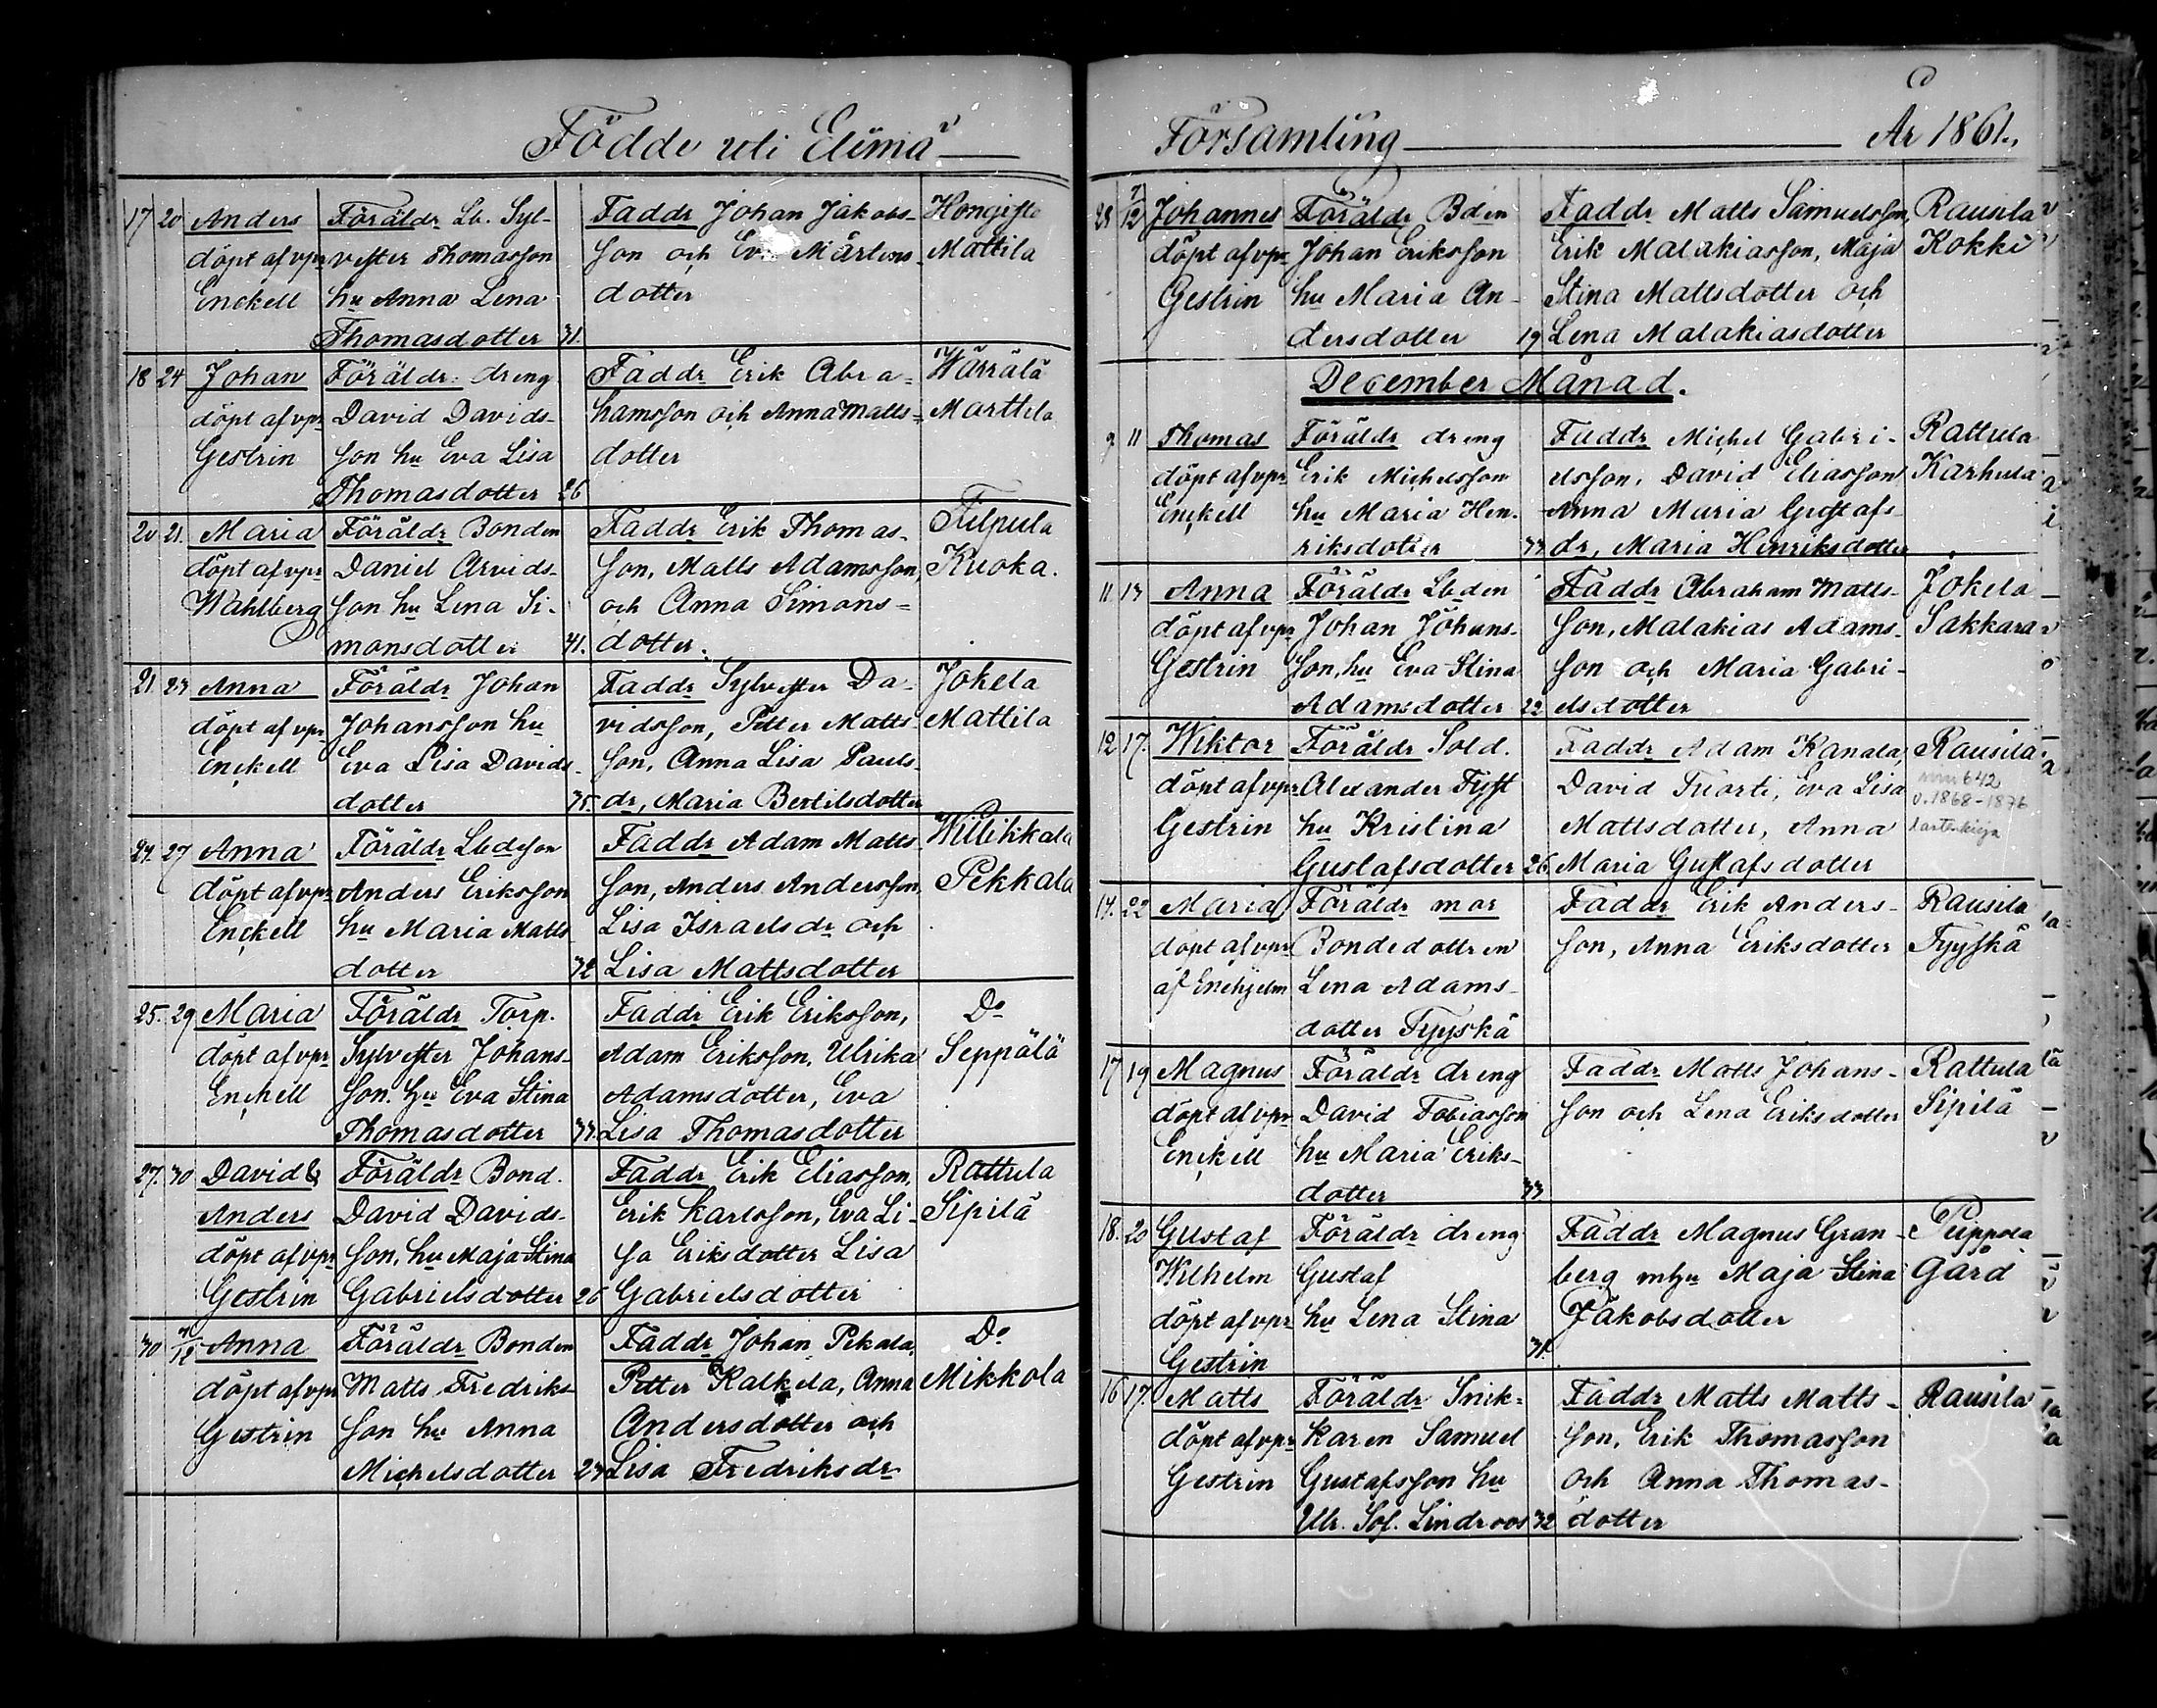 Födde uti Elimä
17 20 Anders Föräldr Lb. Syl- Faddr Johan Jakobs- Hongisto
döpt af vpr vester Thomasson son och Eva Mårtens- Mattila
Enckell hu Anna Lena dotter
Thomasdotter 31.
18 24 Johan Föräldr: dreng Faddr Erik Abra- Wärrälä
döpt af vpr David Davids- hamsson och Anna Matts- Marttila
Gestrin son hu Eva Lisa dotter
Thomasdotter 26
20 21. Maria Föräldr Bonden Faddr Erik Thomas- Fulpula
döpt af vpr Daniel Arvids- son, Matts Adamsson, Kuoka.
Wahlberg son hu Lena Si- och Anna Simons-
monsdotter 41. dotter.
21. 23 Anna Föräldr Johan Faddr Sylvester Da- Jokela
döpt af vpr Johansson hu vidsson, Petter Matts- Mattila
Enckell Eva Lisa Davids- son, Anna Lisa Pauls-
dotter 35. dr, Maria Bertilsdotter
24. 27 Anna Föräldr Lbdeson Faddr Adam Matts- Willikkala
döpt af vpr Anders Eriksson son, Anders Andersson, Pekkala
Enckell hu Maria Matts- Lisa Israelsdr och
dotter 32 Lisa Mattsdotter
25. 29 Maria Föräldr Torp. Faddr Erik Eriksson, Do
döpt af vpr Sylvester Johans- Adam Eriksson, Ulrika Seppälä
Enckell son. hu Eva Stina Adamsdotter, Eva
Thomasdotter 33. Lisa Thomasdotter
27. 30 David & Föräldr Bond. Faddr Erik Eliasson, Rattula
Anders David Davids- Erik Karlsson, Eva Li- Sipilä
döpt af vpr son, hu Maja Stina sa Eriksdotter Lisa
Gestrin Gabrielsdotter 26 Gabrielsdotter
30 /12 Anna Föräldr Bonden Faddr Johan Pekala, Do
döpt af vpr Matts Fredriks- Petter Kalkela, Anna Mikkola
Gestrin son hu Anna Andersdotter och
Michelsdotter 23 Lisa Fredriksdr
Församling Ar 1861.
28 1/12 Johannes Föräldr Bden Faddr Matts Samuelsson, Rausila
döpt af vpr Johan Eriksson Erik Malakiasson, Maja Kokki
Gestrin hu Maria An- Stina Mattsdotter och
dersdotter 19 Lena Malakiasdotter
December Månad.
9 11 Thomas Föräldr dreng Faddr Michel Gabri- Rattula
döpt af vpr Erik Michelsson elsson, David Eliasson Karhula
Enckell hu Maria Hen- Anna Maria Gustafs-
riksdotter 33 dr, Maria Henriksdotter
11 13 Anna Föräldr Lbden Faddr Abraham Matts- Jokela
döpt af vpr Johan Johans- son, Malakias Adams- Sakkara
Gestrin son, hu Eva Stina son och Maria Gabri-
Adamsdotter 22 elsdotter
12 17. Wiktor Föräldr Sold. Faddr Adam Kanala, Rausila
döpt af vpr Alexander Fyst David Tuorti, Eva Lisa mm 642
v. 1868-1876
Gestrin hu Kristina Mattsdotter, Anna
Gustafsdotter 26. Maria Gustafsdotter
17. 22 Maria Föräldr mor Faddr Erik Anders- Rausila
döpt af vpr Bondedottren son, Anna Eriksdotter Tyyskä
af Enehjelm Lena Adams-
dotter Tyyskä
17 19 Magnus Föräldr dreng Faddr Matts Johans- Rattula
döpt af vpr David Tobiasson son och Lena Eriksdotter Sipilä
Enckell hu Maria Eriks-
dotter 33
18. 20 Gustaf Föräldr dreng Faddr Magnus Gran- Peippola
Wilhelm Gustaf berg mhu Maja Stina Gård
döpt af vpr hu Lena Stina Jakobsdotter
Gestrin 31.
16 17. Matts Föräldr Snik- Faddr Matts Matts- Rausila
döpt af vpr karen Samuel son, Erik Thomasson
Gestrin Gustafsson hu och Anna Thomas-
Ulr. Sof. Lindroos 32 dotter